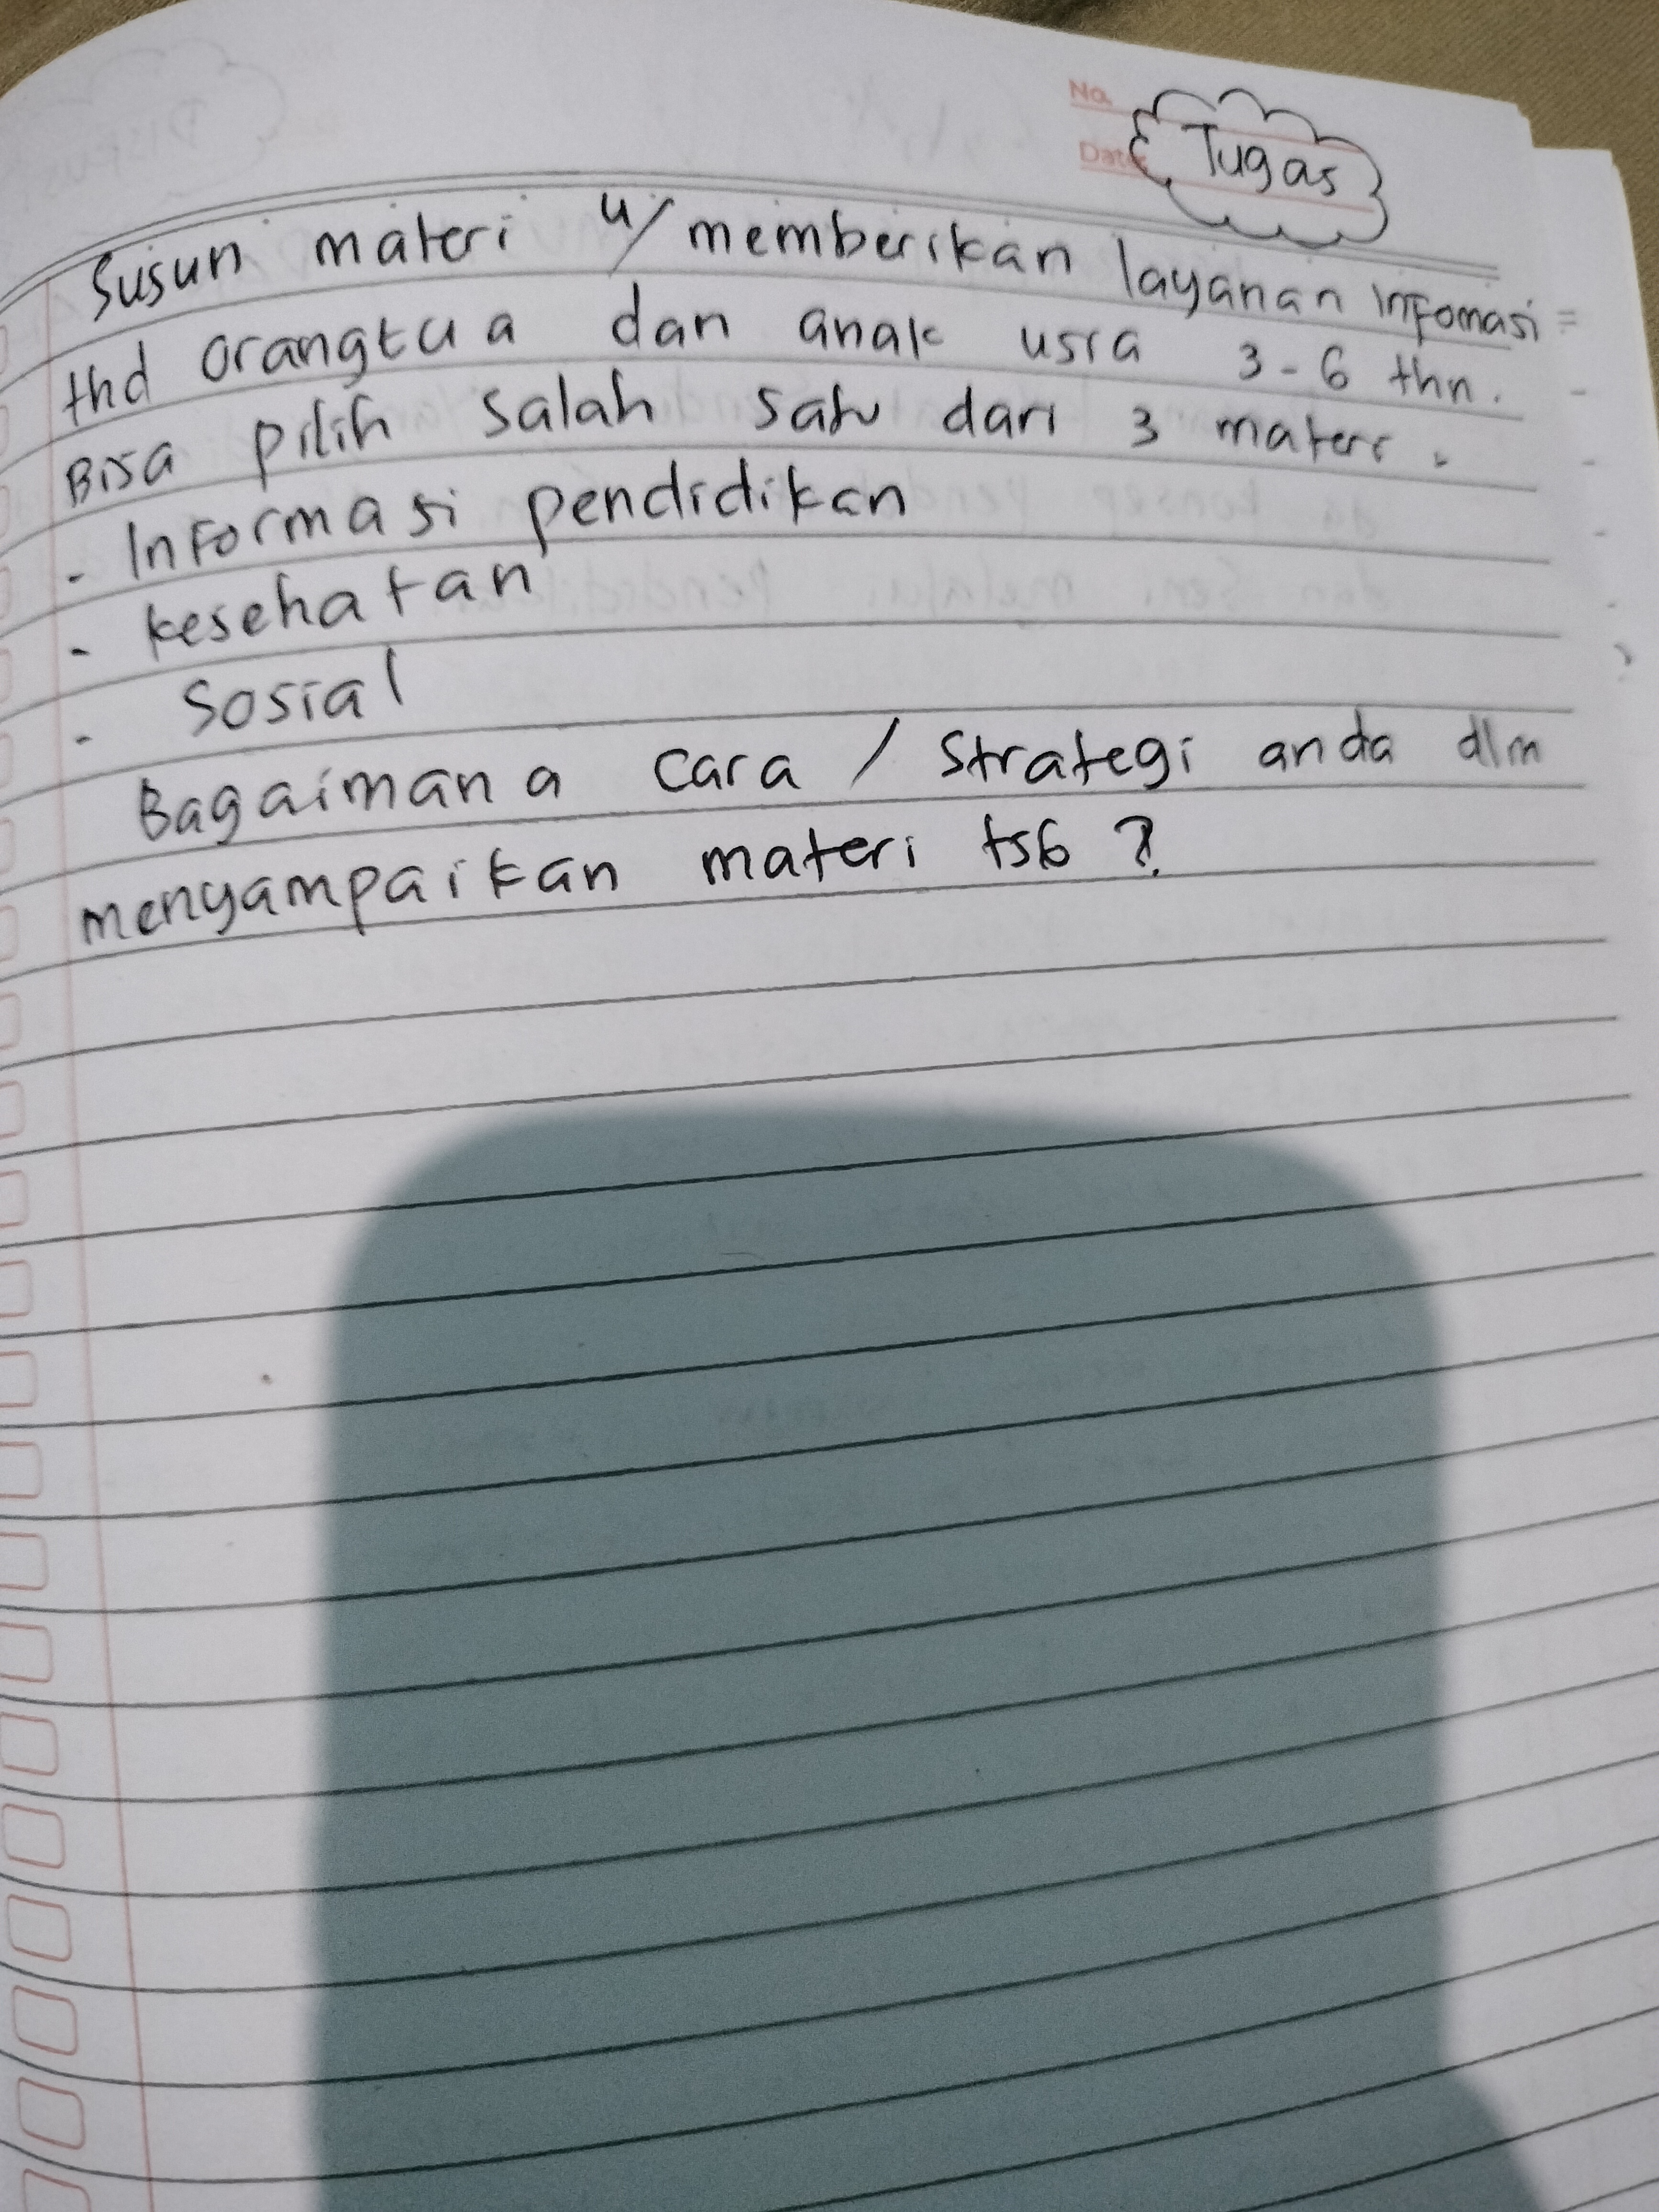 No.
Date
Tugas
Susun materi u/ memberikan layanan infomasi
thd orangtua dan anak usia 3-6 thn.
Bisa pilih salah satu dari 3 materi.
- Informasi pendidikan
- kesehatan
- Sosial
Bagaimana cara / strategi anda dlm
menyampaikan materi tsb ?